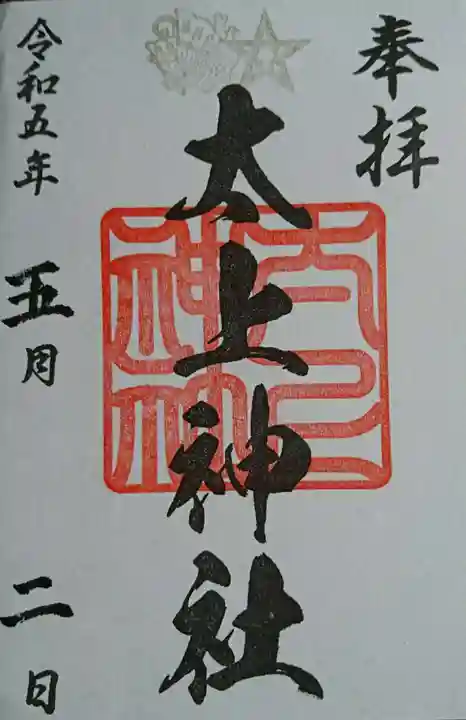 奉拝
太上神社
令和五年 五月 二日